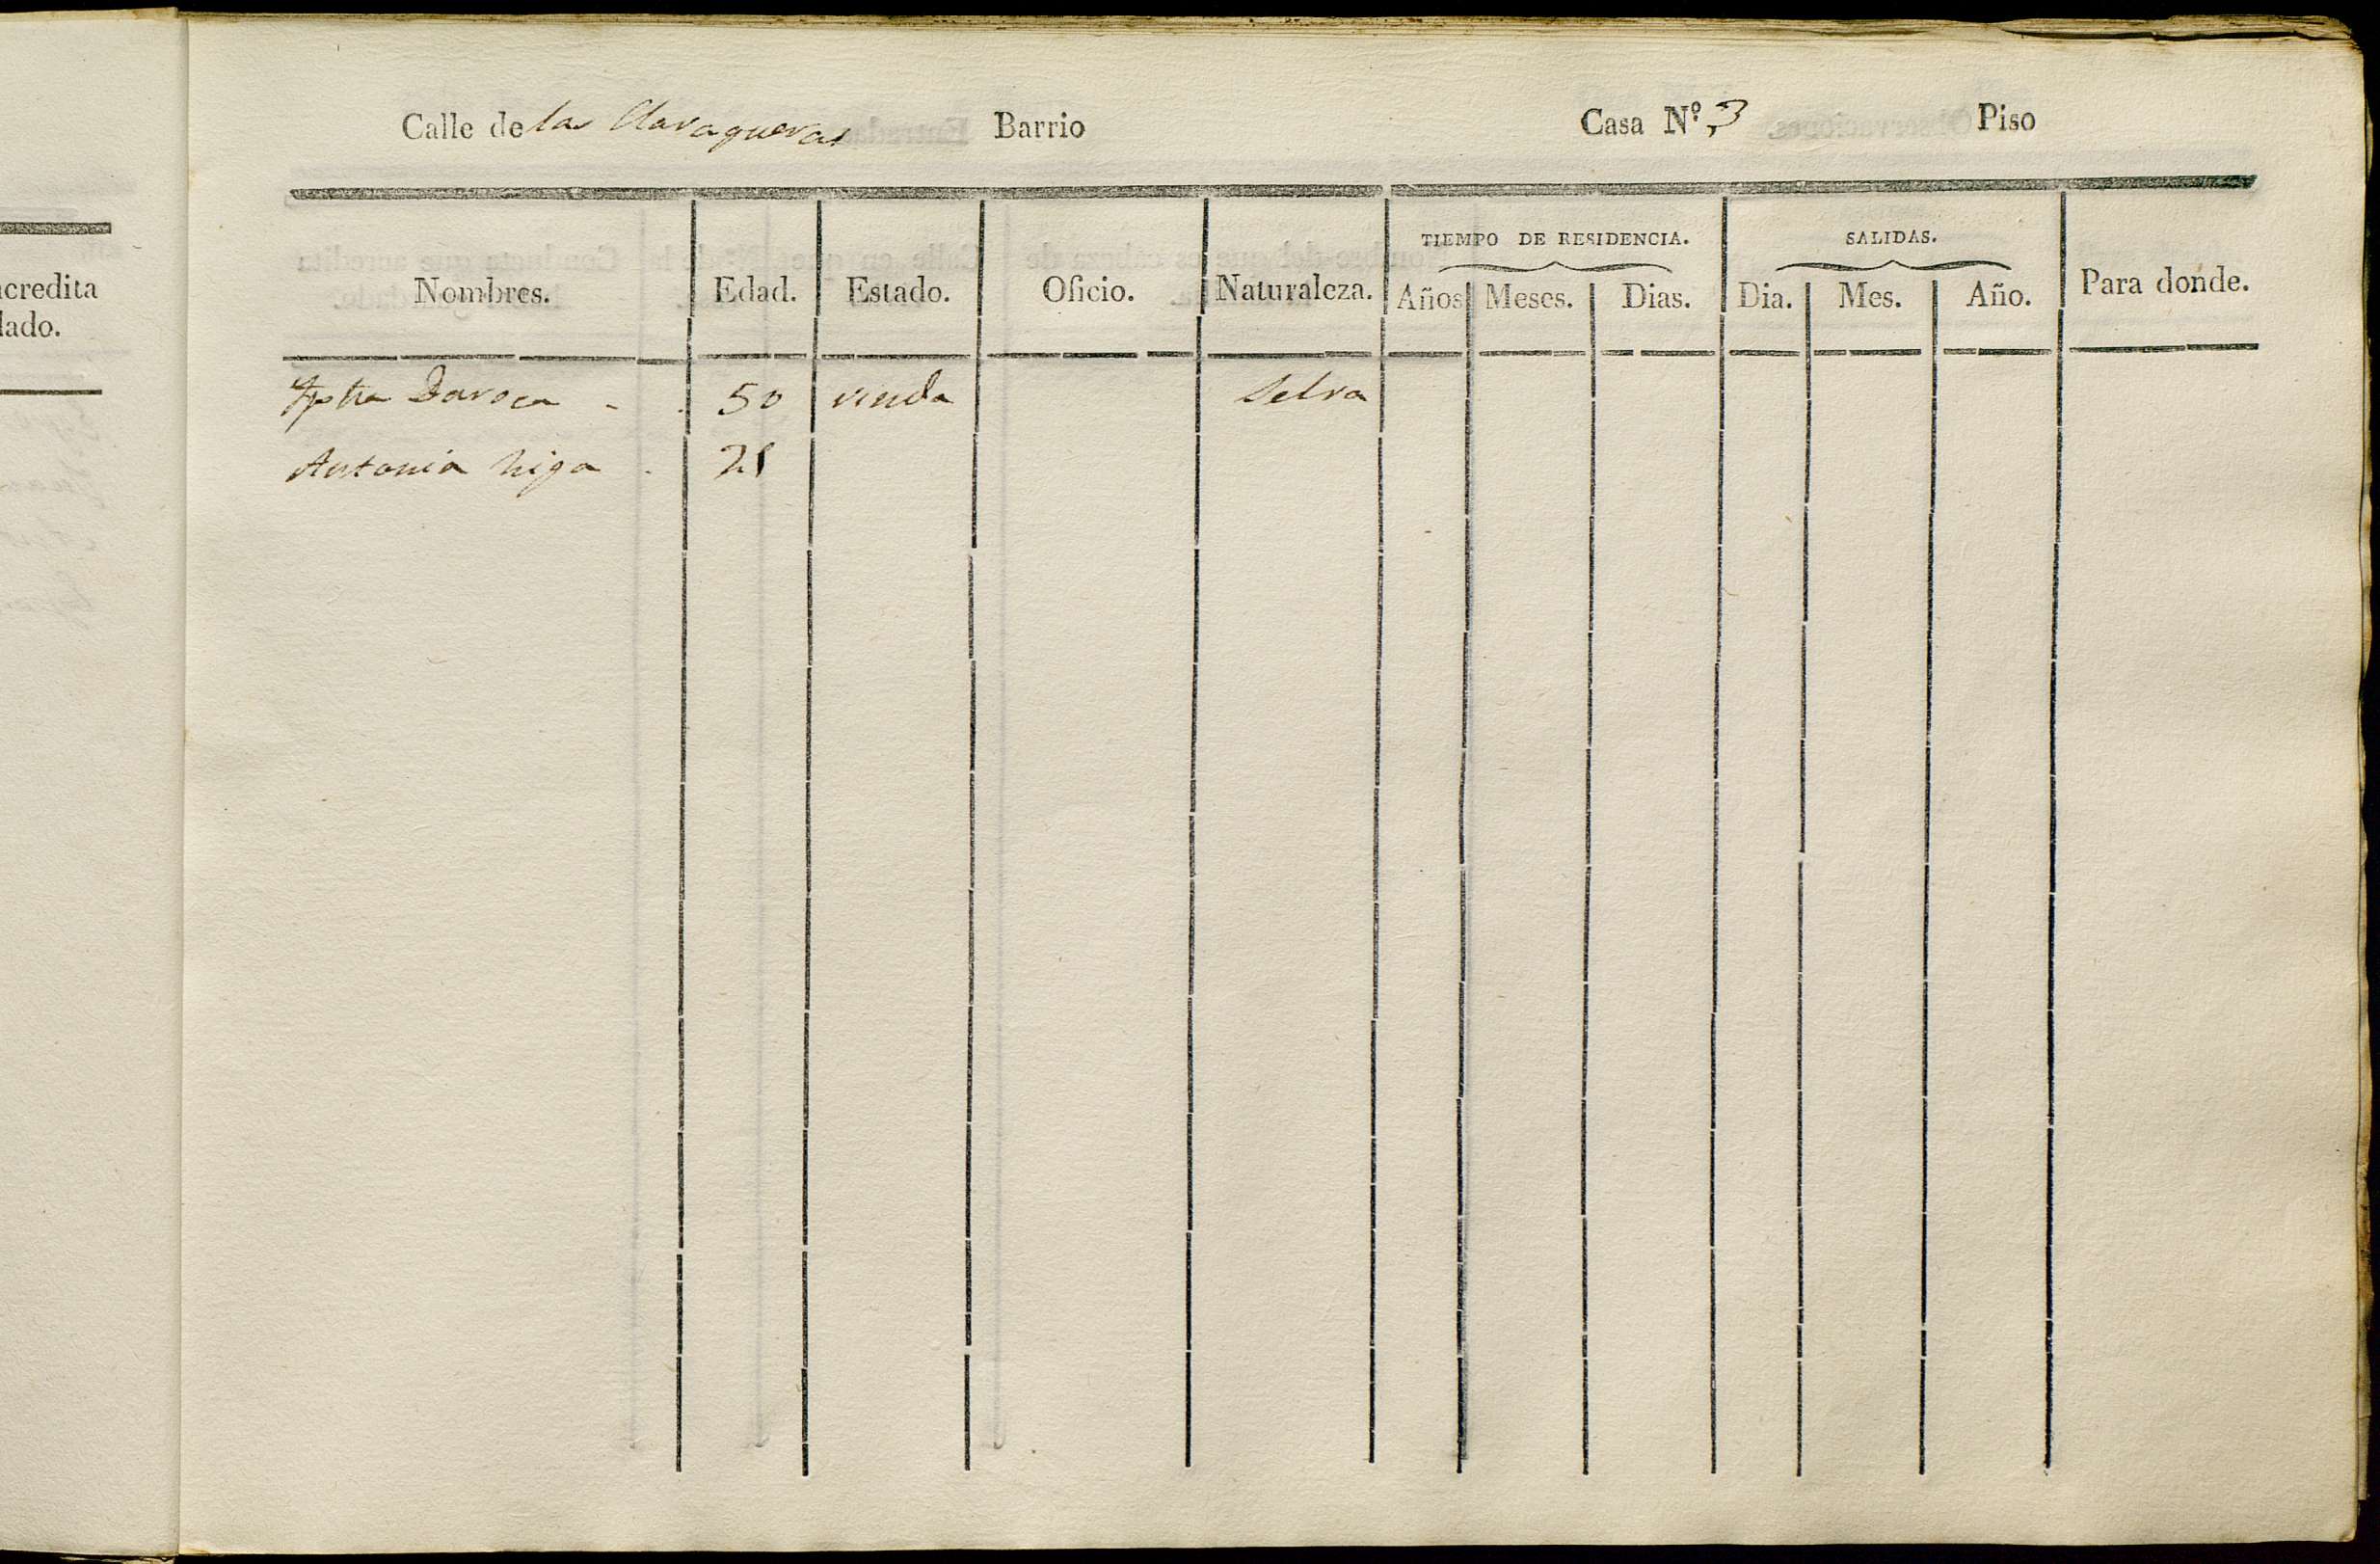 acredita
lado.
Calle de las Claraqueras Barrio Casa Nº 3 Piso
TIEMPO DE RESIDENCIA. SALIDAS.
Nombres. Edad. Estado. Oficio. Naturaleza. Años Meses. Dias. Dia. Mes. Año. Para donde.
Daroca 50 viuda Selva
Antonia hija 21